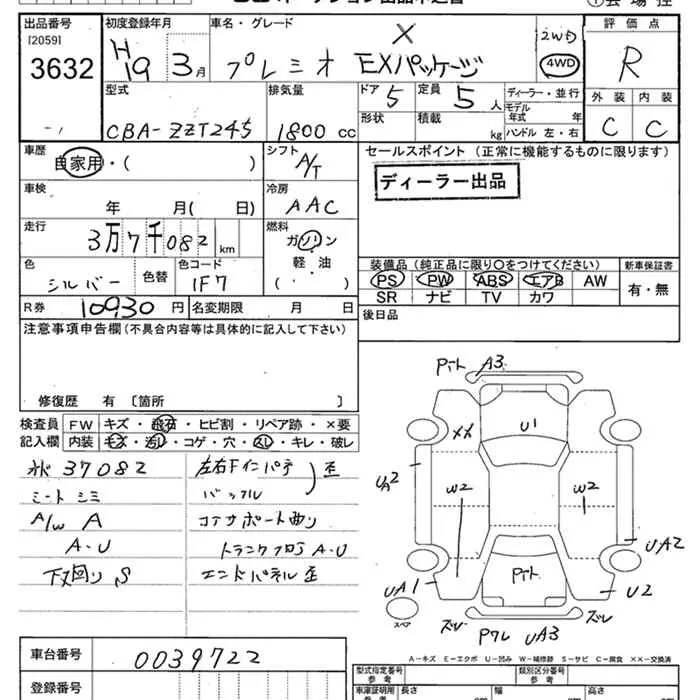 出品番号
[2059]
3632
初度登録年月
H19 3月
車名・グレード
プレミオ EXパッケージ
2WD
4WD
評価点
R
外装 内装
C C
型式
CBA-ZZT245
排気量
1800 cc
ドア
5
定員
5人
形状
積載
kg
ディーラー・並行
モデル年式 年
ハンドル 左・右
車歴
自家用・( )
シフト
A/T
セールスポイント (正常に機能するものに限ります)
ディーラー出品
車検
年 月( 日)
冷房
AAC
走行
3万7千082 km
燃料
ガソリン
軽・油
( ・ )
色
シルバー
色替
色コード
1F7
装備品 (純正品に限り○をつけてください)
新車保証書
PS PW ABS エアB AW
有・無
SR ナビ TV カワ
R券 10930 円
名変期限 月 日
後日品
注意事項申告欄 (不具合内容等は具体的に記入して下さい)
修復歴 有 〔箇所 〕
検査員記入欄
FW キズ・飛石・ヒビ割・リペア跡・×要
内装 キズ・汚レ・コゲ・穴・スレ・キレ・破レ
37082
シートシミ
A/W A
A・U
下廻り S
左右Fインパネ
バッフル
歪
コアサポート曲り
トランクフロア A・U
エンドパネル歪
A3
U1
××
W2
W2
UA2
UA2
UA1
U2
UA3
スペア
A-キズ E-エクボ U-凹み W-補修跡 S-サビ C-腐食 ××-交換済
車台番号
0039722
登録番号
型式指定番号
参考
類別区分番号
参考
車庫証明用
参考
長さ
幅
高さ